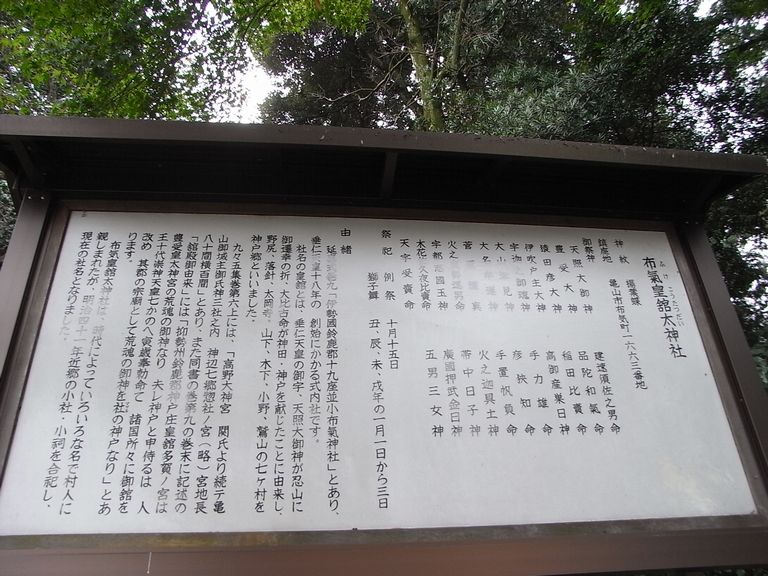 布氣皇舘太神社
ふけこうたつだい
神紋 揚羽蝶
鎮座地 亀山市布気町一六六三番地
御祭神
天照大御神 建速須佐之男命
豊受大神 品陀和氣命
猿田彦大神 稲田比賣命
伊吹戸主大神 高御産巣日神
宇迦之御魂神 手力雄命
大山津見神 彦狭知命
大名牟遅神 手置帆負命
菅 火之迦具土神
火之 男命 帯中日子神
宇都志國玉神 廣國押武金日神
木花 久夜比賣命 五男三女神
天宇受賣命
祭祀 例祭 十月十五日
獅子舞 丑、辰、未、戌年の一月一日から三日
由緒
延 巻九「伊勢國鈴鹿郡十九座並小布氣神社」とあり、
垂仁天皇十八年の 創始にかかる式内社です。
社名の皇舘とは、垂仁天皇の御宇、天照大御神が忍山に
御遷幸の折、大比古命が神田・神戸を献じたことに由来し、
野尻、落針、太岡寺、山下、木下、小野、鷲山の七ヶ村を
神戸郷といいました。
九々五集巻第六上には、「高野大神宮 関氏より続テ亀
山御城主御氏神三社之内 神辺七郷惣社ノ宮(略)宮地長
八十間横百間」とあり、また同書の巻第九の巻末に記述の
「舘殿御由来」には「抑勢州鈴鹿郡神戸庄皇舘多賀ノ宮は
豊受皇太神宮の荒魂の御神なり 夫レ神戸と申侍るは 人
王十代崇神天皇七かのへ寅歳奉勅命て 諸国所々に御舘を
改め 其郡の宗廟として荒魂の御神を社の神戸なり」とあ
ります。
布気皇舘太神社は、時代によっていろいろな名で村人に
親しまれたが、明治四十一年近郷の小社・小祠を合祀し、
現在の社名となりました。